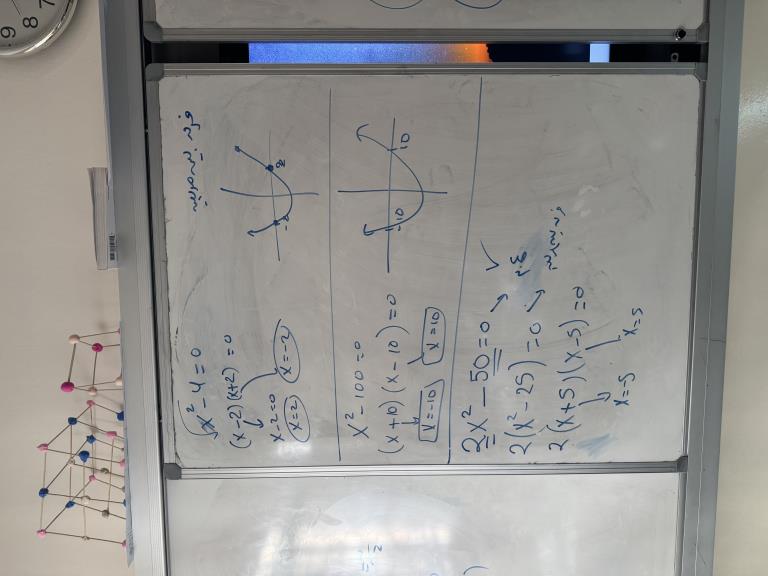 فرق بين مربعين
x² - 4 = 0
(x-2)(x+2) = 0
x-2=0
x=2
x=-2
2
-2
x² - 100 = 0
(x+10)(x-10) = 0
x=-10
x=10
-10
10
2x² - 50 = 0 → ✓
2(x² - 25) = 0 →
2(x+5)(x-5) = 0
x=-5
x=5
9
8
7